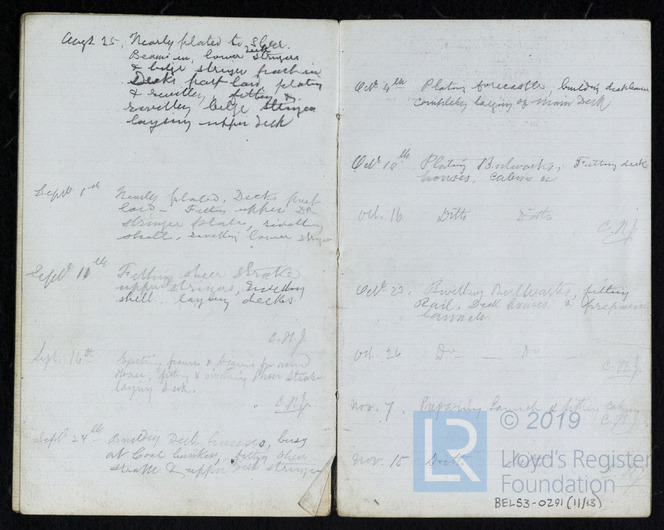 Augt 25. Nearly plated to Sheer.
Beams in, lower deck stringers
& bilge stringer part in
Decks part laid, plating
& rivetting, fitting &
rivetting bilge stringer
laying upper deck
Septr 1st Nearly plated, Decks part
laid - Fitting upper Dk
stringer plate, rivetting
shell, rivetting lower stringer
Septr 10th Fitting sheer strake
upper stringers, rivetting
shell. laying decks
C.N.J.
Sept. 16th Erecting frames & beams for
House, fitting & rivetting Sheer Strake
laying Deck.
C.N.J.
Septr 24th Deck houses, busy
at Coal bunkers, fitting sheer
strake & upper deck stringer
Octr 4th Plating forecastle, building deck houses
completing laying of main Deck
Octr 10th Plating Bulwarks, Fitting deck
houses, cabins &c
Oct. 16 Ditto Ditto
C.N.J.
Octr 23. Rivetting Bulwarks, fitting
Rail, Deck houses &
launch
Oct. 26 Do — Do
C.N.J.
Nov. 7. Preparing Launch & fitting cabins
C.N.J.
Nov. 15
LR
© 2019
Lloyd's Register
Foundation
BELS3-0291 (11/13)